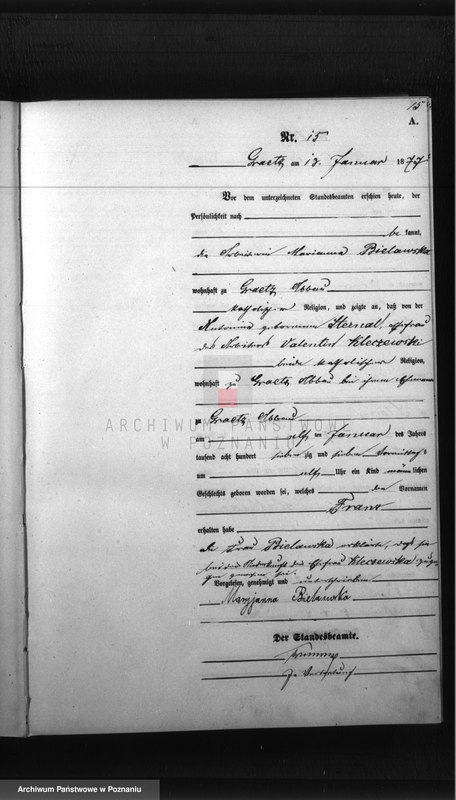 15
A.
Nr. 15
Graetz am 13. Januar 1877
Vor dem unterzeichneten Standesbeamten erschien heute, der
Persönlichkeit nach
be kannt,
die Arbeiterin Marianna Bielawska
wohnhaft zu Graetz Abbau
katholischer Religion, und zeigte an, daß von der
Antonina geborenen Sternal, Ehefrau
des Arbeiters Valentin Kleczewski
beide katholischer Religion,
wohnhaft zu Graetz Abbau bei ihrem Ehemann
zu Graetz Abbau
am elften Januar des Jahres
tausend acht hundert sieben zig und sieben Vormittags
um elf Uhr ein Kind männ lichen
Geschlechts geboren worden sei, welches den Vornamen
Franz
erhalten habe
Die Frau Bielawska erklärte, daß sie
bei der Niederkunft der Ehefrau Kleczewska zuge-
gen gewesen sei.
Vorgelesen, genehmigt und unterschrieben
Maryjanna Bielawska
Der Standesbeamte.
In Vertretung
ARCHIWUM PAŃSTWOWE
W POZNANIU
Archiwum Państwowe w Poznaniu